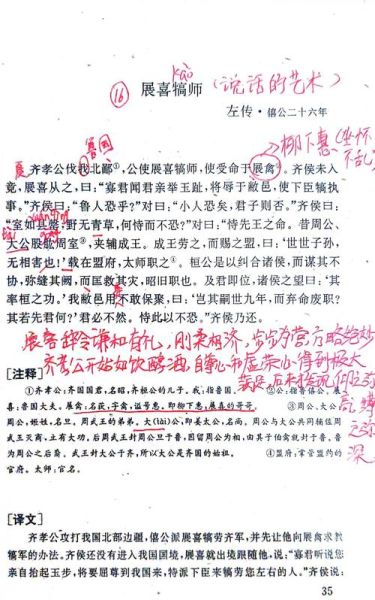 kào
⑯ 展喜犒师 (说话的艺术)
左传·僖公二十六年
鲁国
柳下惠(坐怀不乱)
夏 齐孝公伐我北鄙①,公使展喜犒师,使受命于展禽②。齐侯未入
竟,展喜从之,曰:“寡君闻君亲举玉趾,将辱于敝邑,使下臣犒执
事。”齐侯曰:“鲁人恐乎?”对曰:“小人恐矣,君子则否。”齐侯曰:
“室如县罄,野无青草,何恃而不恐?”对曰:“恃先王之命。昔周公、
大公股肱周室③,夹辅成王。成王劳之,而赐之盟,曰:‘世世子孙,
无相害也!’载在盟府,太师职之④。桓公是以纠合诸侯,而谋其不
协,弥缝其阙,而匡救其灾,昭旧职也。及君即位,诸侯之望曰:‘其
率桓之功。’我敝邑用不敢保聚,曰:‘岂其嗣世九年,而弃命废职?
其若先君何?’君必不然。恃此以不恐。”齐侯乃还。
展喜辞令谦和有礼,刚柔相济,步步为营,方略绝妙
齐孝公开始如饮醇酒,自尊心和虚荣心得到极大
满足,后来
[注释]
①齐孝公:齐国国君,名昭,齐桓公的儿子。我:指鲁国。 ②公:指鲁僖公。展
喜:鲁国大夫。展禽:名获,字禽,谥号惠,即柳下惠,展喜的哥哥。 ③周公、大公:
周公,姬姓,名旦。周武王的弟弟。大(tài)公,即姜太公,名尚。周公与大公共同辅佐周
武王灭商,立有大功,后周武王封周公旦于鲁,因留周公为相,由其子伯禽就封于鲁。鲁
为周公之后裔。武王封大公于齐,所以大公是齐国的始祖。 ④盟府:掌管盟约的
官府。太师:官名。
[译文]
齐孝公攻打我国北部边疆,僖公派展喜犒劳齐军,并先让他向展禽求教
犒军的办法。齐侯还没有进入我国国境,展喜就出境跟随他,说:“寡君听说您
亲自抬起玉步,将要屈尊到我国来,特派下臣来犒劳您左右的人。”齐侯说:
35